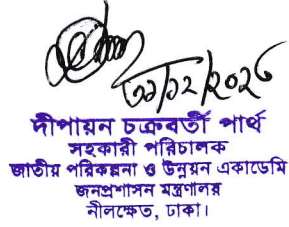 ৩১/১২/২০২৩
দীপায়ন চক্রবর্তী পার্থ
সহকারী পরিচালক
জাতীয় পরিকল্পনা ও উন্নয়ন একাডেমি
জনপ্রশাসন মন্ত্রণালয়
নীলক্ষেত, ঢাকা।